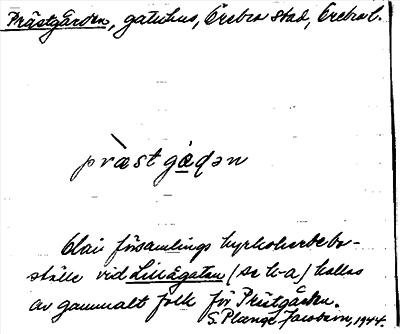 Prästgården, gatuhus, Örebro stad, Örebro l.
præstgådən
Olai församlings kyrkoherdebo-
ställe vid Lillågatan (se h-a) kallas
av gammalt folk för Prästgården.
S. Plange Jacobson, 1944.